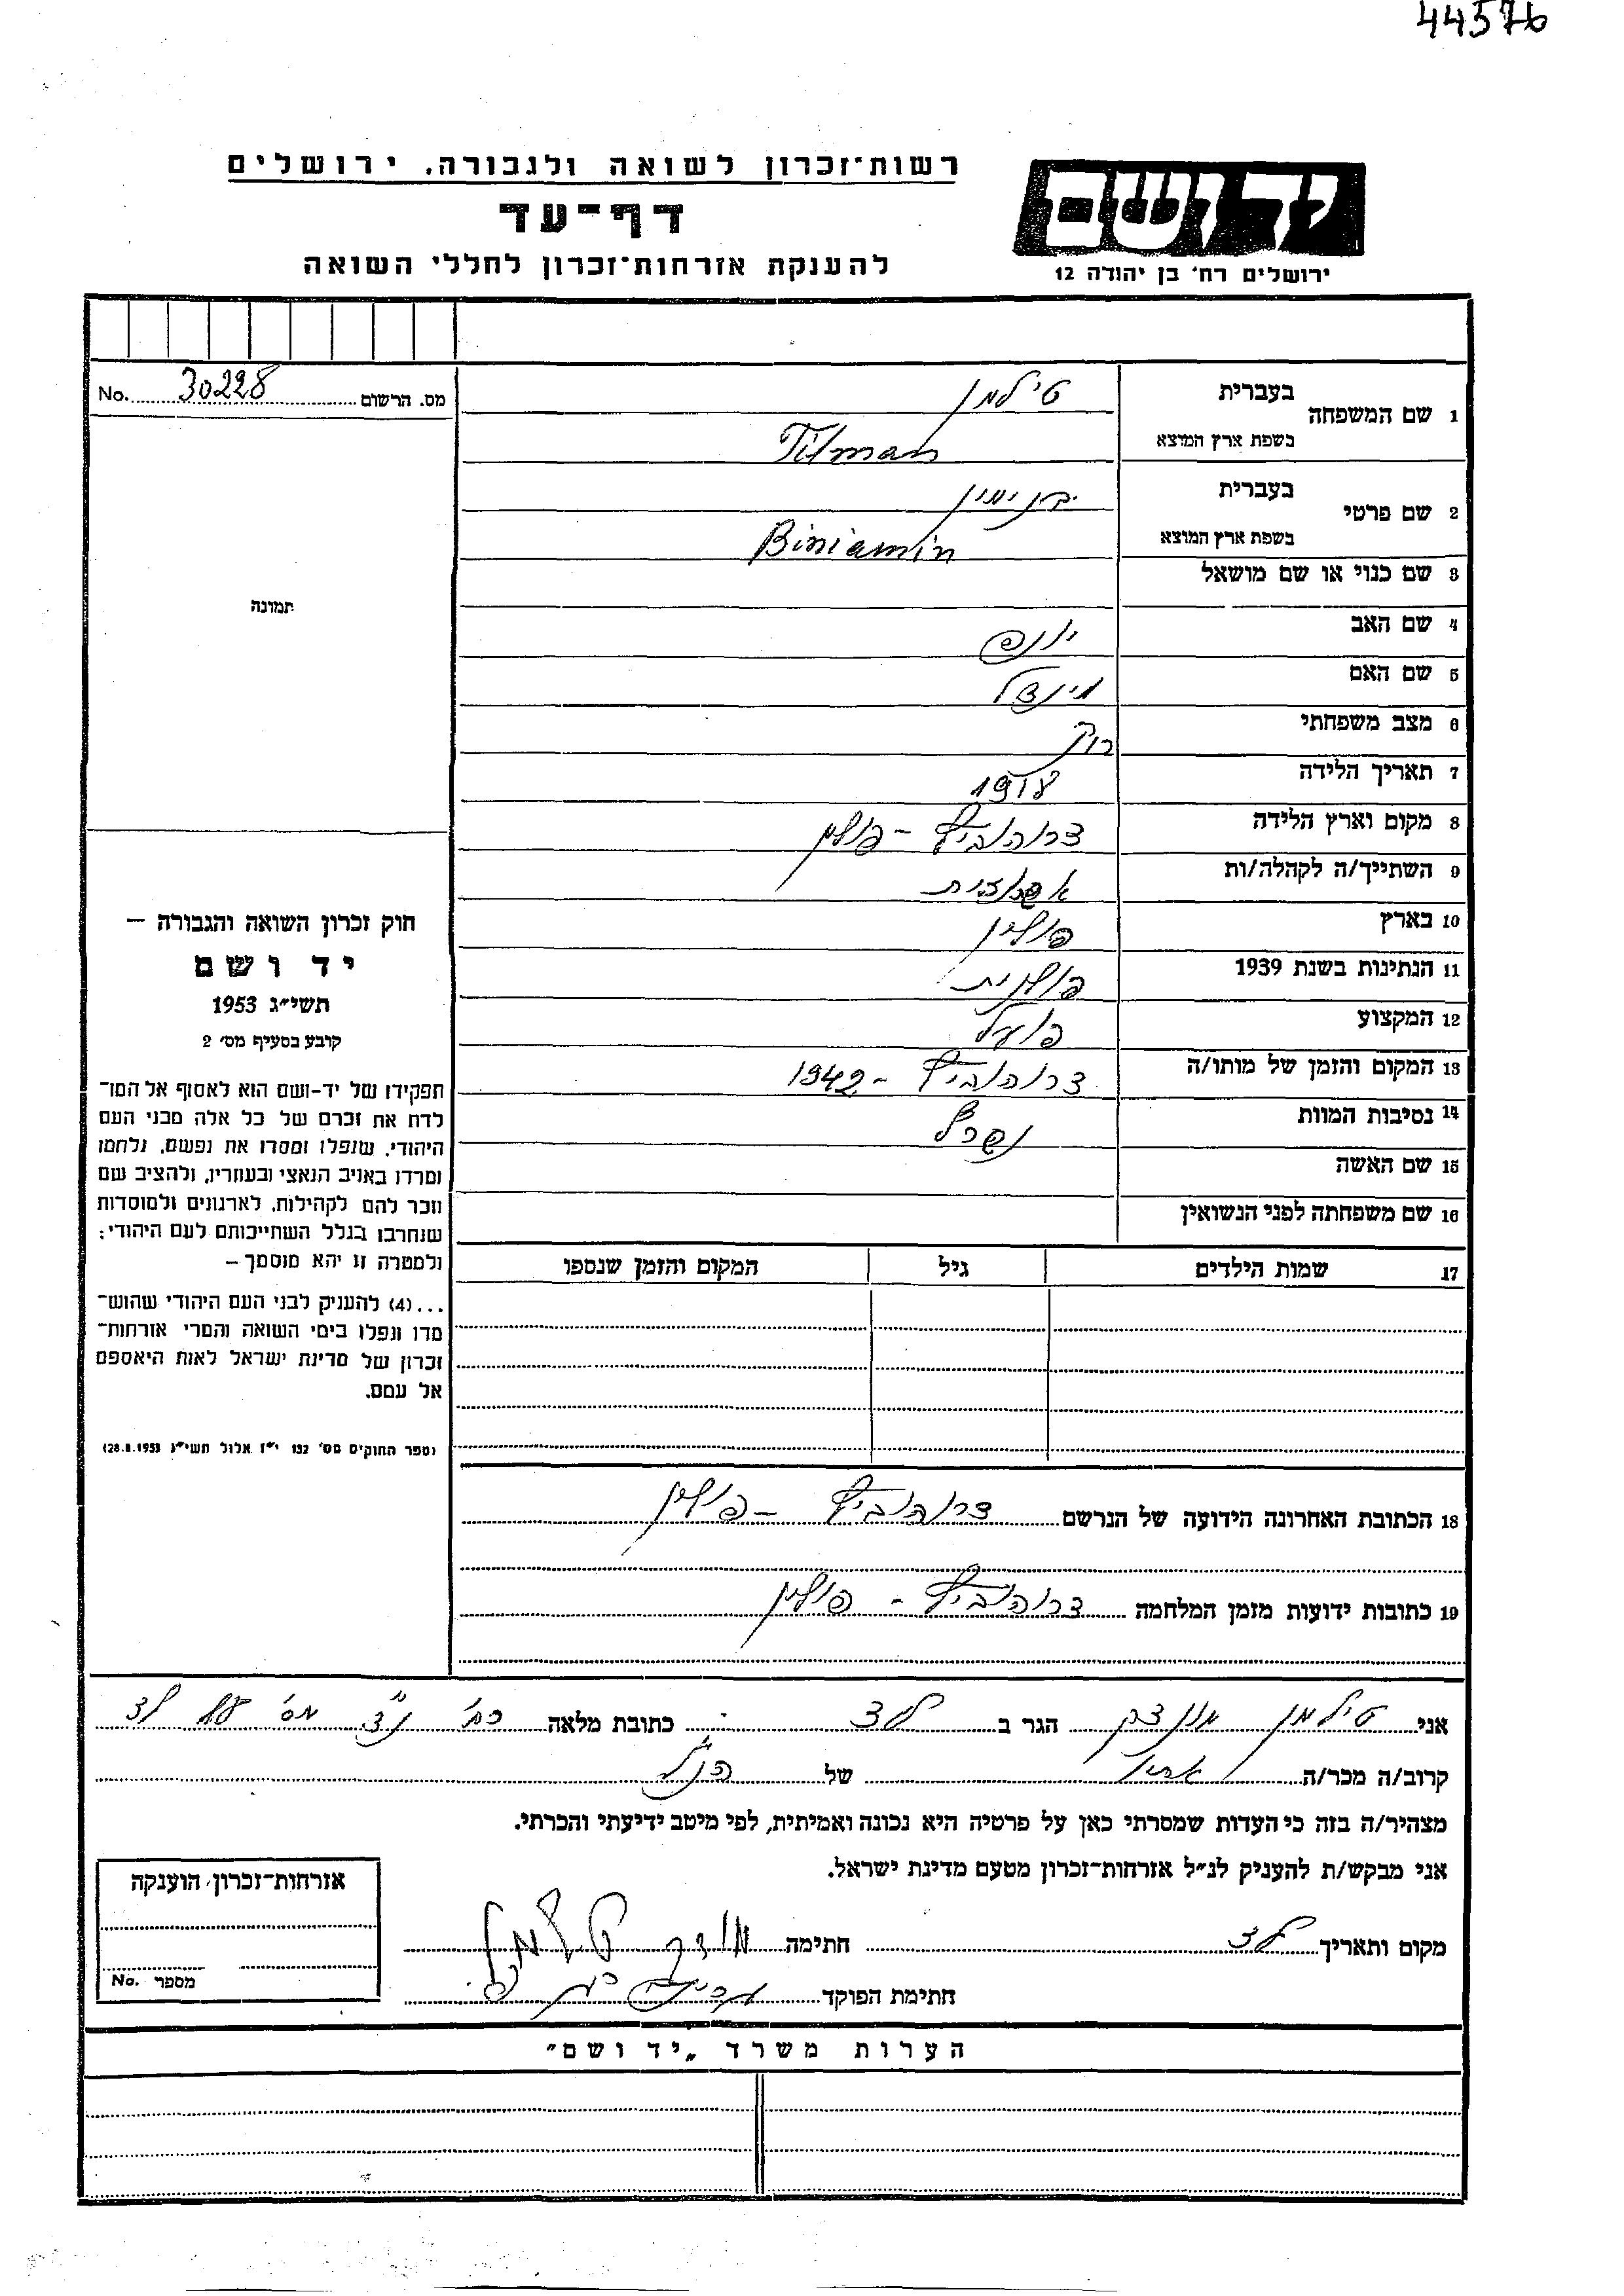 44576
רשות־זכרון לשואה ולגבורה. ירושלים
דף־עד
להענקת אזרחות־זכרון לחללי השואה
יד ושם
ירושלים רח׳ בן יהודה 12
מס. הרשום 30228 No.
1 שם המשפחה בעברית טילמן
בשפת ארץ המוצא Tilman
2 שם פרטי בעברית בנימין
בשפת ארץ המוצא Biniamin
3 שם כנוי או שם מושאל
4 שם האב יונס
5 שם האם
6 מצב משפחתי רוק
7 תאריך הלידה 1918
8 מקום וארץ הלידה דרוהוביץ - פולין
9 השתייך/ה לקהלה/ות אשכנזית
10 בארץ פולין
11 הנתינות בשנת 1939 פולנית
12 המקצוע פועל
13 המקום והזמן של מותו/ה דרוהוביץ - 1942
14 נסיבות המוות
15 שם האשה
16 שם משפחתה לפני הנשואין
17 שמות הילדים גיל המקום והזמן שנספו
18 הכתובת האחרונה הידועה של הנרשם דרוהוביץ - פולין
19 כתובות ידועות מזמן המלחמה דרוהוביץ - פולין
תמונה
חוק זכרון השואה והגבורה —
יד ושם
תשי״ג 1953
קובע בסעיף מס׳ 2
תפקידו של יד-ושם הוא לאסוף אל המו־
לדת את זכרם של כל אלה מבני העם
היהודי, שנפלו ומסרו את נפשם, נלחמו
ומרדו באויב הנאצי ובעוזריו, ולהציב שם
וזכר להם לקהילות, לארגונים ולמוסדות
שנחרבו בגלל השתייכותם לעם היהודי;
ולמטרה זו יהא מוסמך —
...(4) להעניק לבני העם היהודי שהוש־
מדו ונפלו בימי השואה והמרי אזרחות־
זכרון של מדינת ישראל לאות היאספם
אל עמם.
(ספר החוקים מס׳ 132 י״ז אלול תשי״ג 28.8.1953)
אני טילמן הגר ב לוד כתובת מלאה מס׳ לוד
קרוב/ה מכר/ה של הנ״ל
מצהיר/ה בזה כי העדות שמסרתי כאן על פרטיה היא נכונה ואמיתית, לפי מיטב ידיעתי והכרתי.
אני מבקש/ת להעניק לנ״ל אזרחות־זכרון מטעם מדינת ישראל.
מקום ותאריך לוד חתימה
חתימת הפוקד
אזרחות־זכרון הוענקה
מספר No.
הערות משרד „יד ושם״